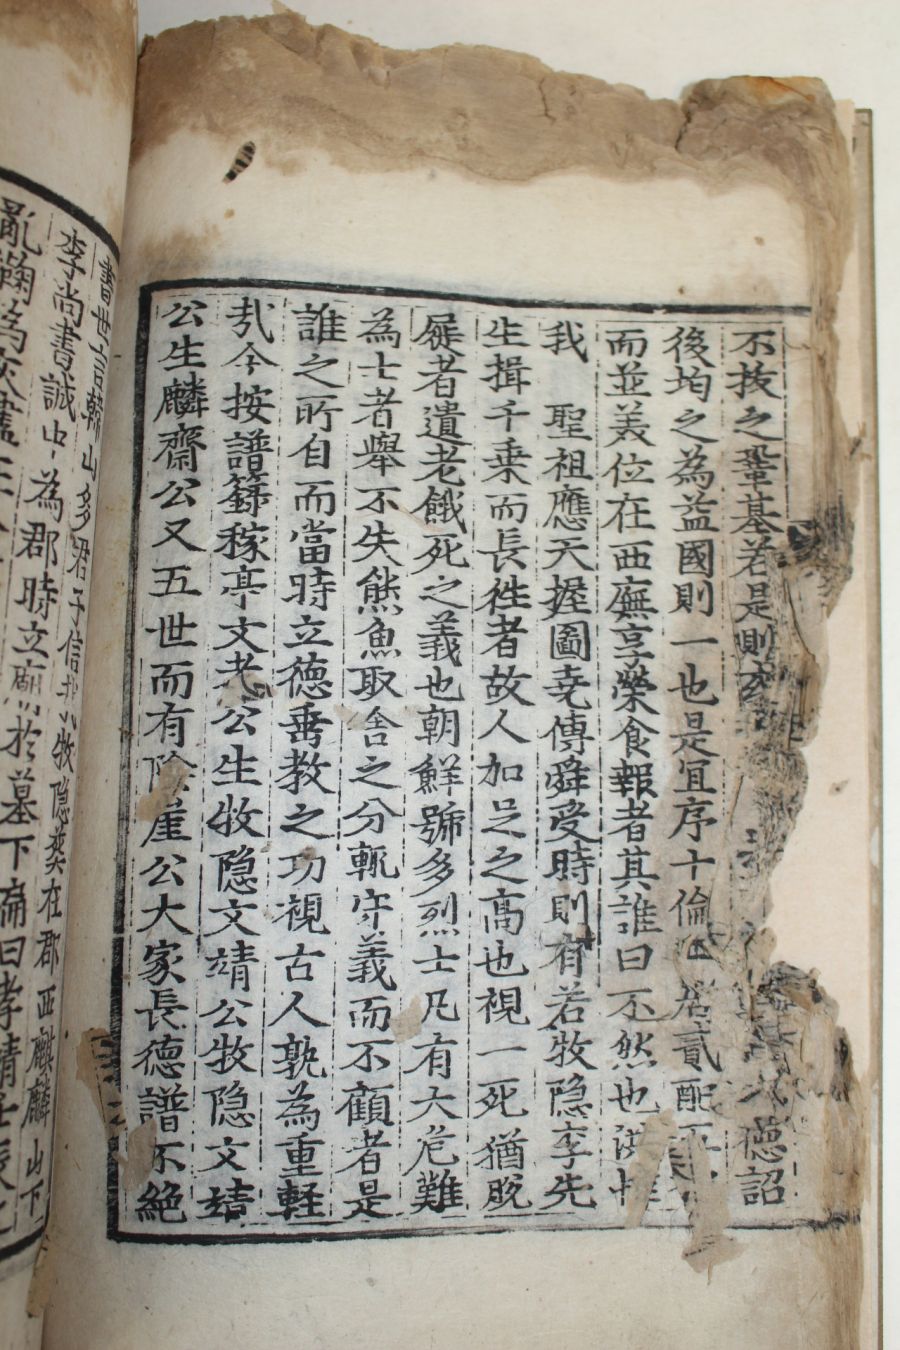 不拔之鞏基若是則德詔
後均之為益國則一也是宜序十倫貳配
而並美位在西廡享榮食報者其誰曰不然也洪惟
我 聖祖應天握圖堯傳舜受時則有若牧隐李先
生揖千乗而長徃者故人加足之高也視一死猶脫
屣者遺老餓死之義也朝鮮號多烈士凡有大危難
為士者舉不失熊魚取舍之分輒守義而不顧者是
誰之所自而當時立德垂教之功視古人孰為重軽
㢤今按譜籍稼亭文孝公生牧隐文靖公牧隐文靖
公生麟齋公又五世而有陰崖公大家長德譜不絶
書世言韓山多君子信牧隐葬在郡西麒麟山下
李尚書誠中為郡時立廟於墓下扁曰孝靖
亂